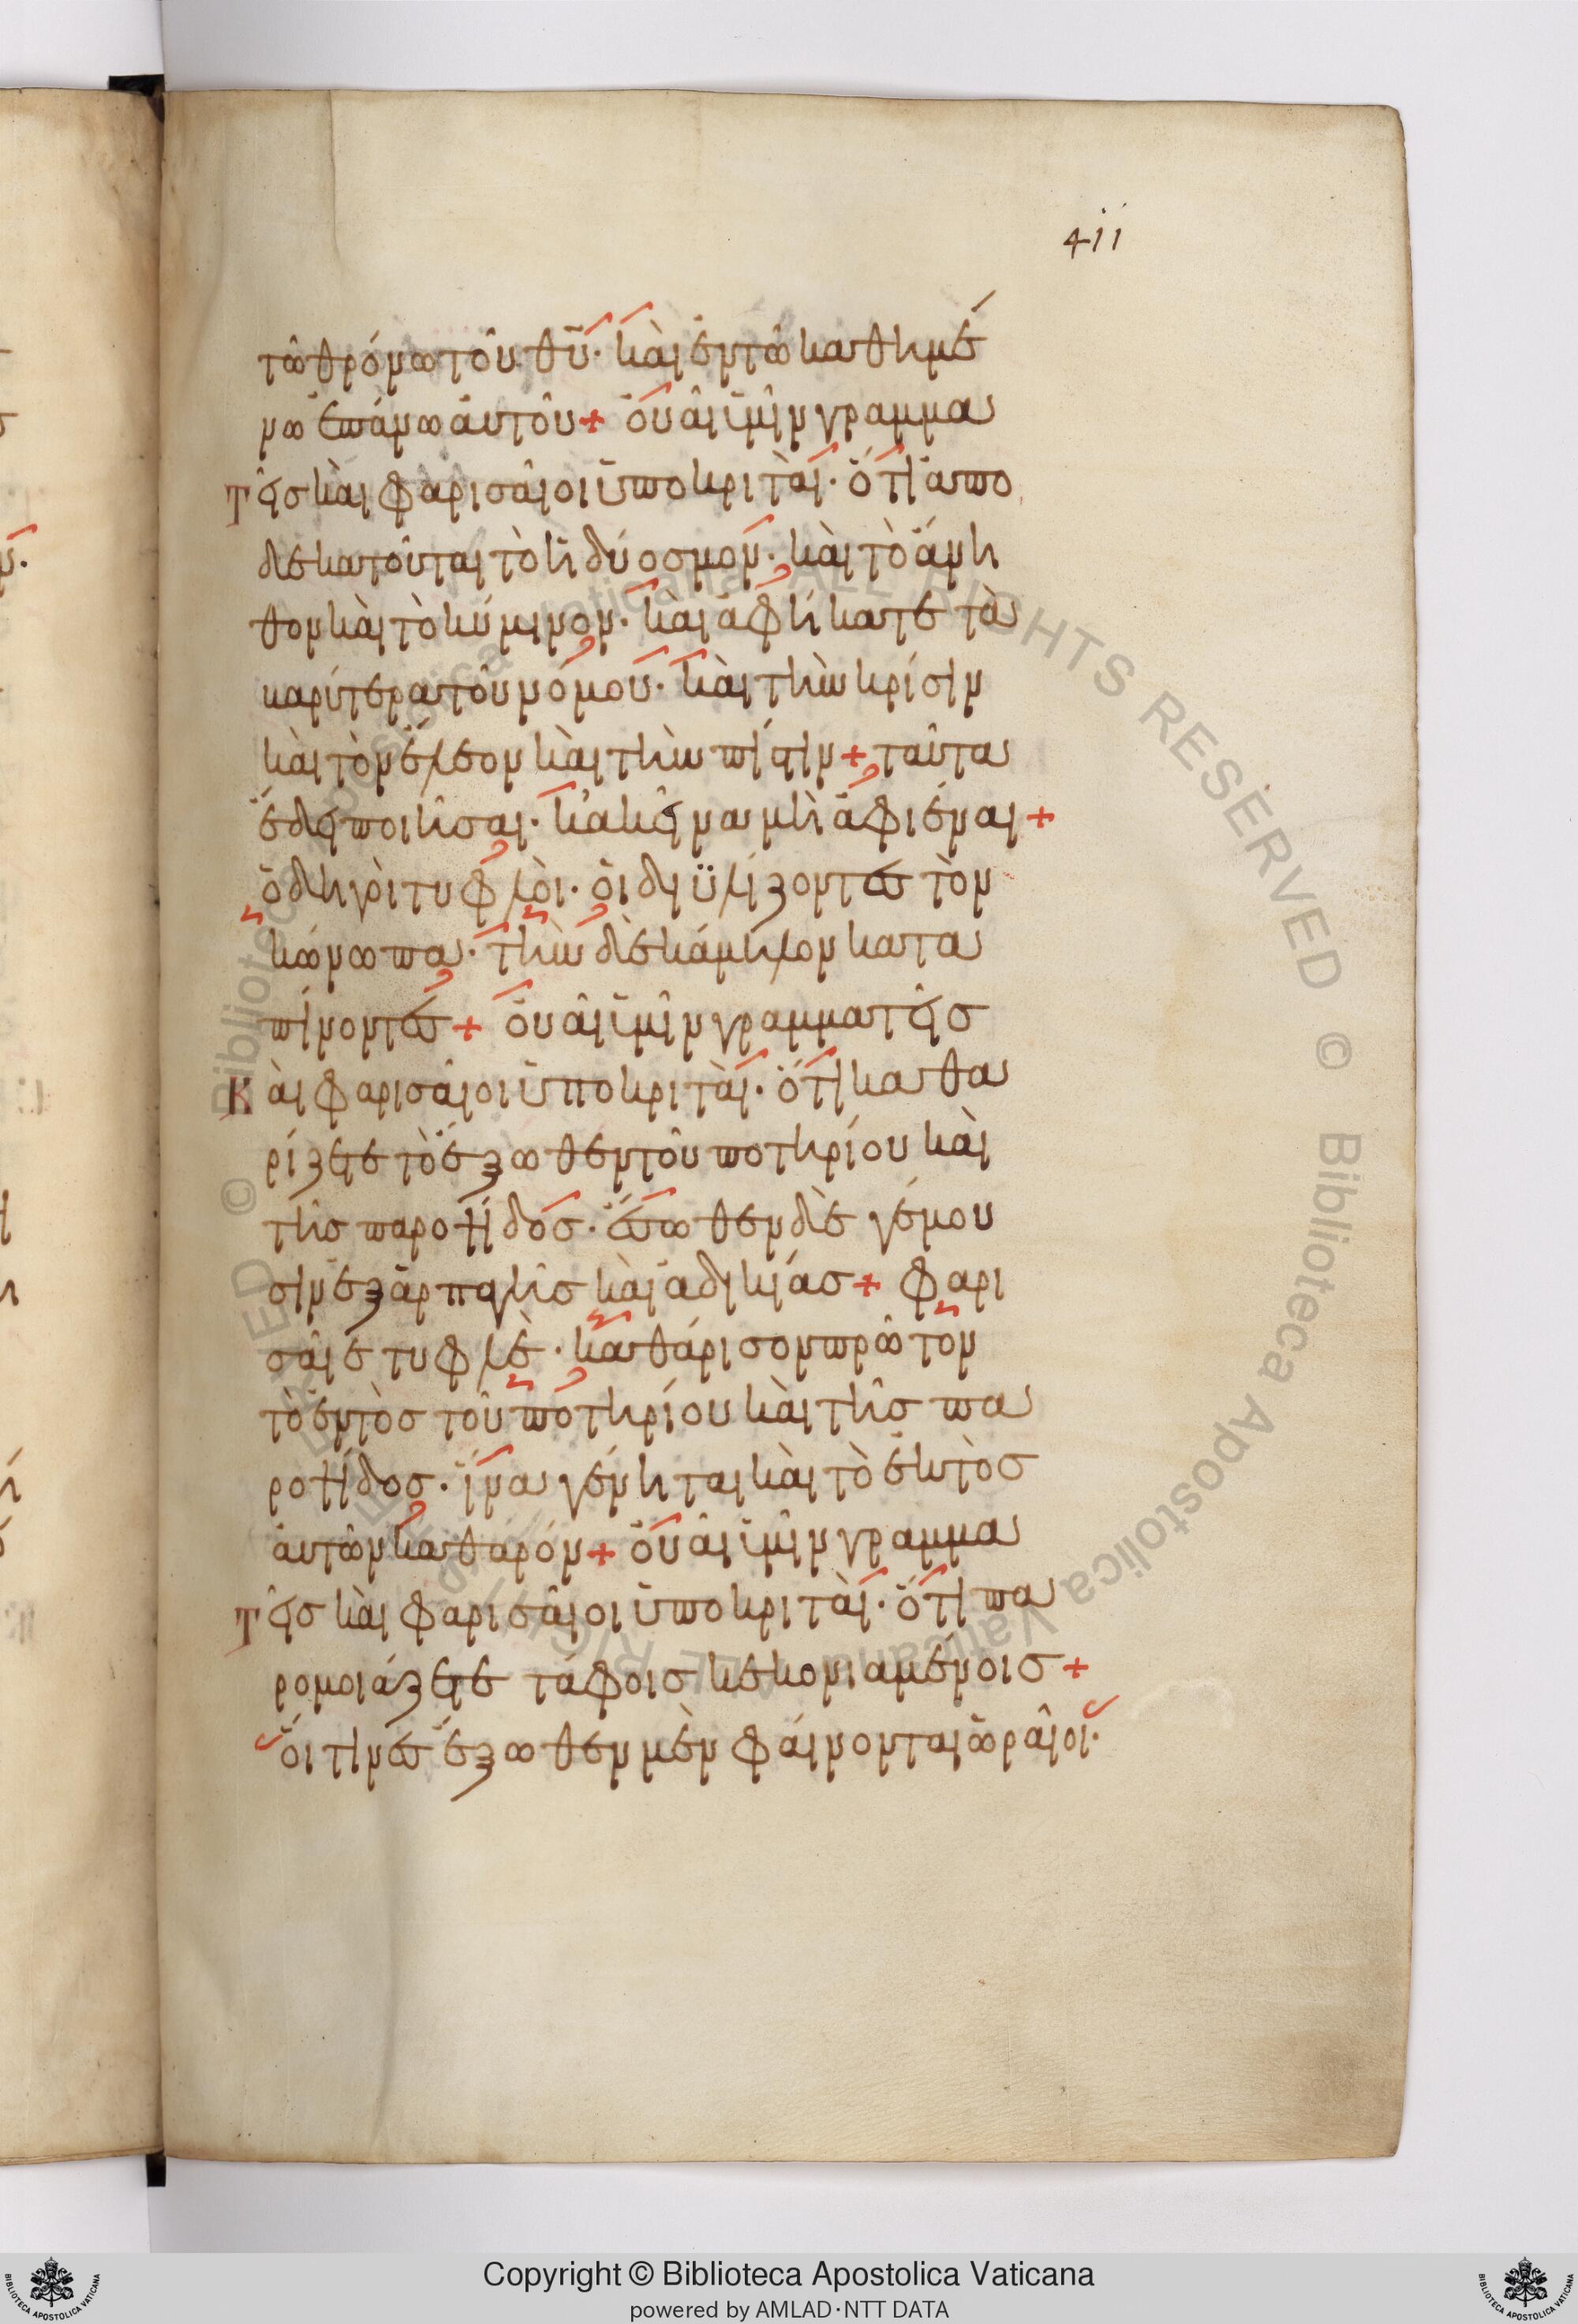 411
τῶ θρόνω τοῦ θυ̅· καὶ ἐν τῶ καθημέ
νω ἐπάνω ἀυτοῦ + ὀυαὶ ὑμῖν γραμμα
τεῖς καὶ φαρισαῖοι ὑποκριταὶ· ὅτι ἀπο
δεκατοῦται τὸ ἡδύοσμον· καὶ τὸ ἄνη
θον καὶ τὸ κύμινον· καὶ ἀφήκατε τὰ
βαρύτερα τοῦ νόμου· καὶ τὴν κρίσιν
καὶ τὸν ἔλεον καὶ τὴν πίστιν + ταῦτα
ἔδει ποιῆσαι· κἀκεῖνα μὴ ἀφιέναι +
ὁδηγὸι τυφλὸι· ὁι διϋλίζοντες τὸν
κώνωπα· τὴν δὲ κάμηλον κατα
πίνοντες + ὀυαὶ ὑμῖν γραμματεῖς
Καὶ φαρισαῖοι ὑποκριταὶ· ὅτι καθα
ρίζετε τὸ ἔξωθεν τοῦ ποτηρίου καὶ
τῆς παροτίδος· ἔσωθεν δὲ γέμου
σιν ἐξ ἁρπαγῆς καὶ ἀδικίας + φαρι
σαῖε τυφλὲ· καθάρισον πρῶτον
τὸ ἐντὸς τοῦ ποτηρίου καὶ τῆς πα
ροτίδος· ἵνα γένηται καὶ τὸ ἐκτὸς
ἀυτῶν καθαρόν + ὀυαὶ ὑμῖν γραμμα
τεῖς καὶ φαρισαῖοι ὑποκριταὶ· ὅτι πα
ρομοιάζετε τάφοις κεκονιαμένοις +
ὅιτινες ἔξωθεν μὲν φάινονται ὡραῖοι·
© Biblioteca Apostolica Vaticana ALL RIGHTS RESERVED
Copyright © Biblioteca Apostolica Vaticana
powered by AMLAD·NTT DATA
BIBLIOTECA APOSTOLICA VATICANA
BIBLIOTECA APOSTOLICA VATICANA